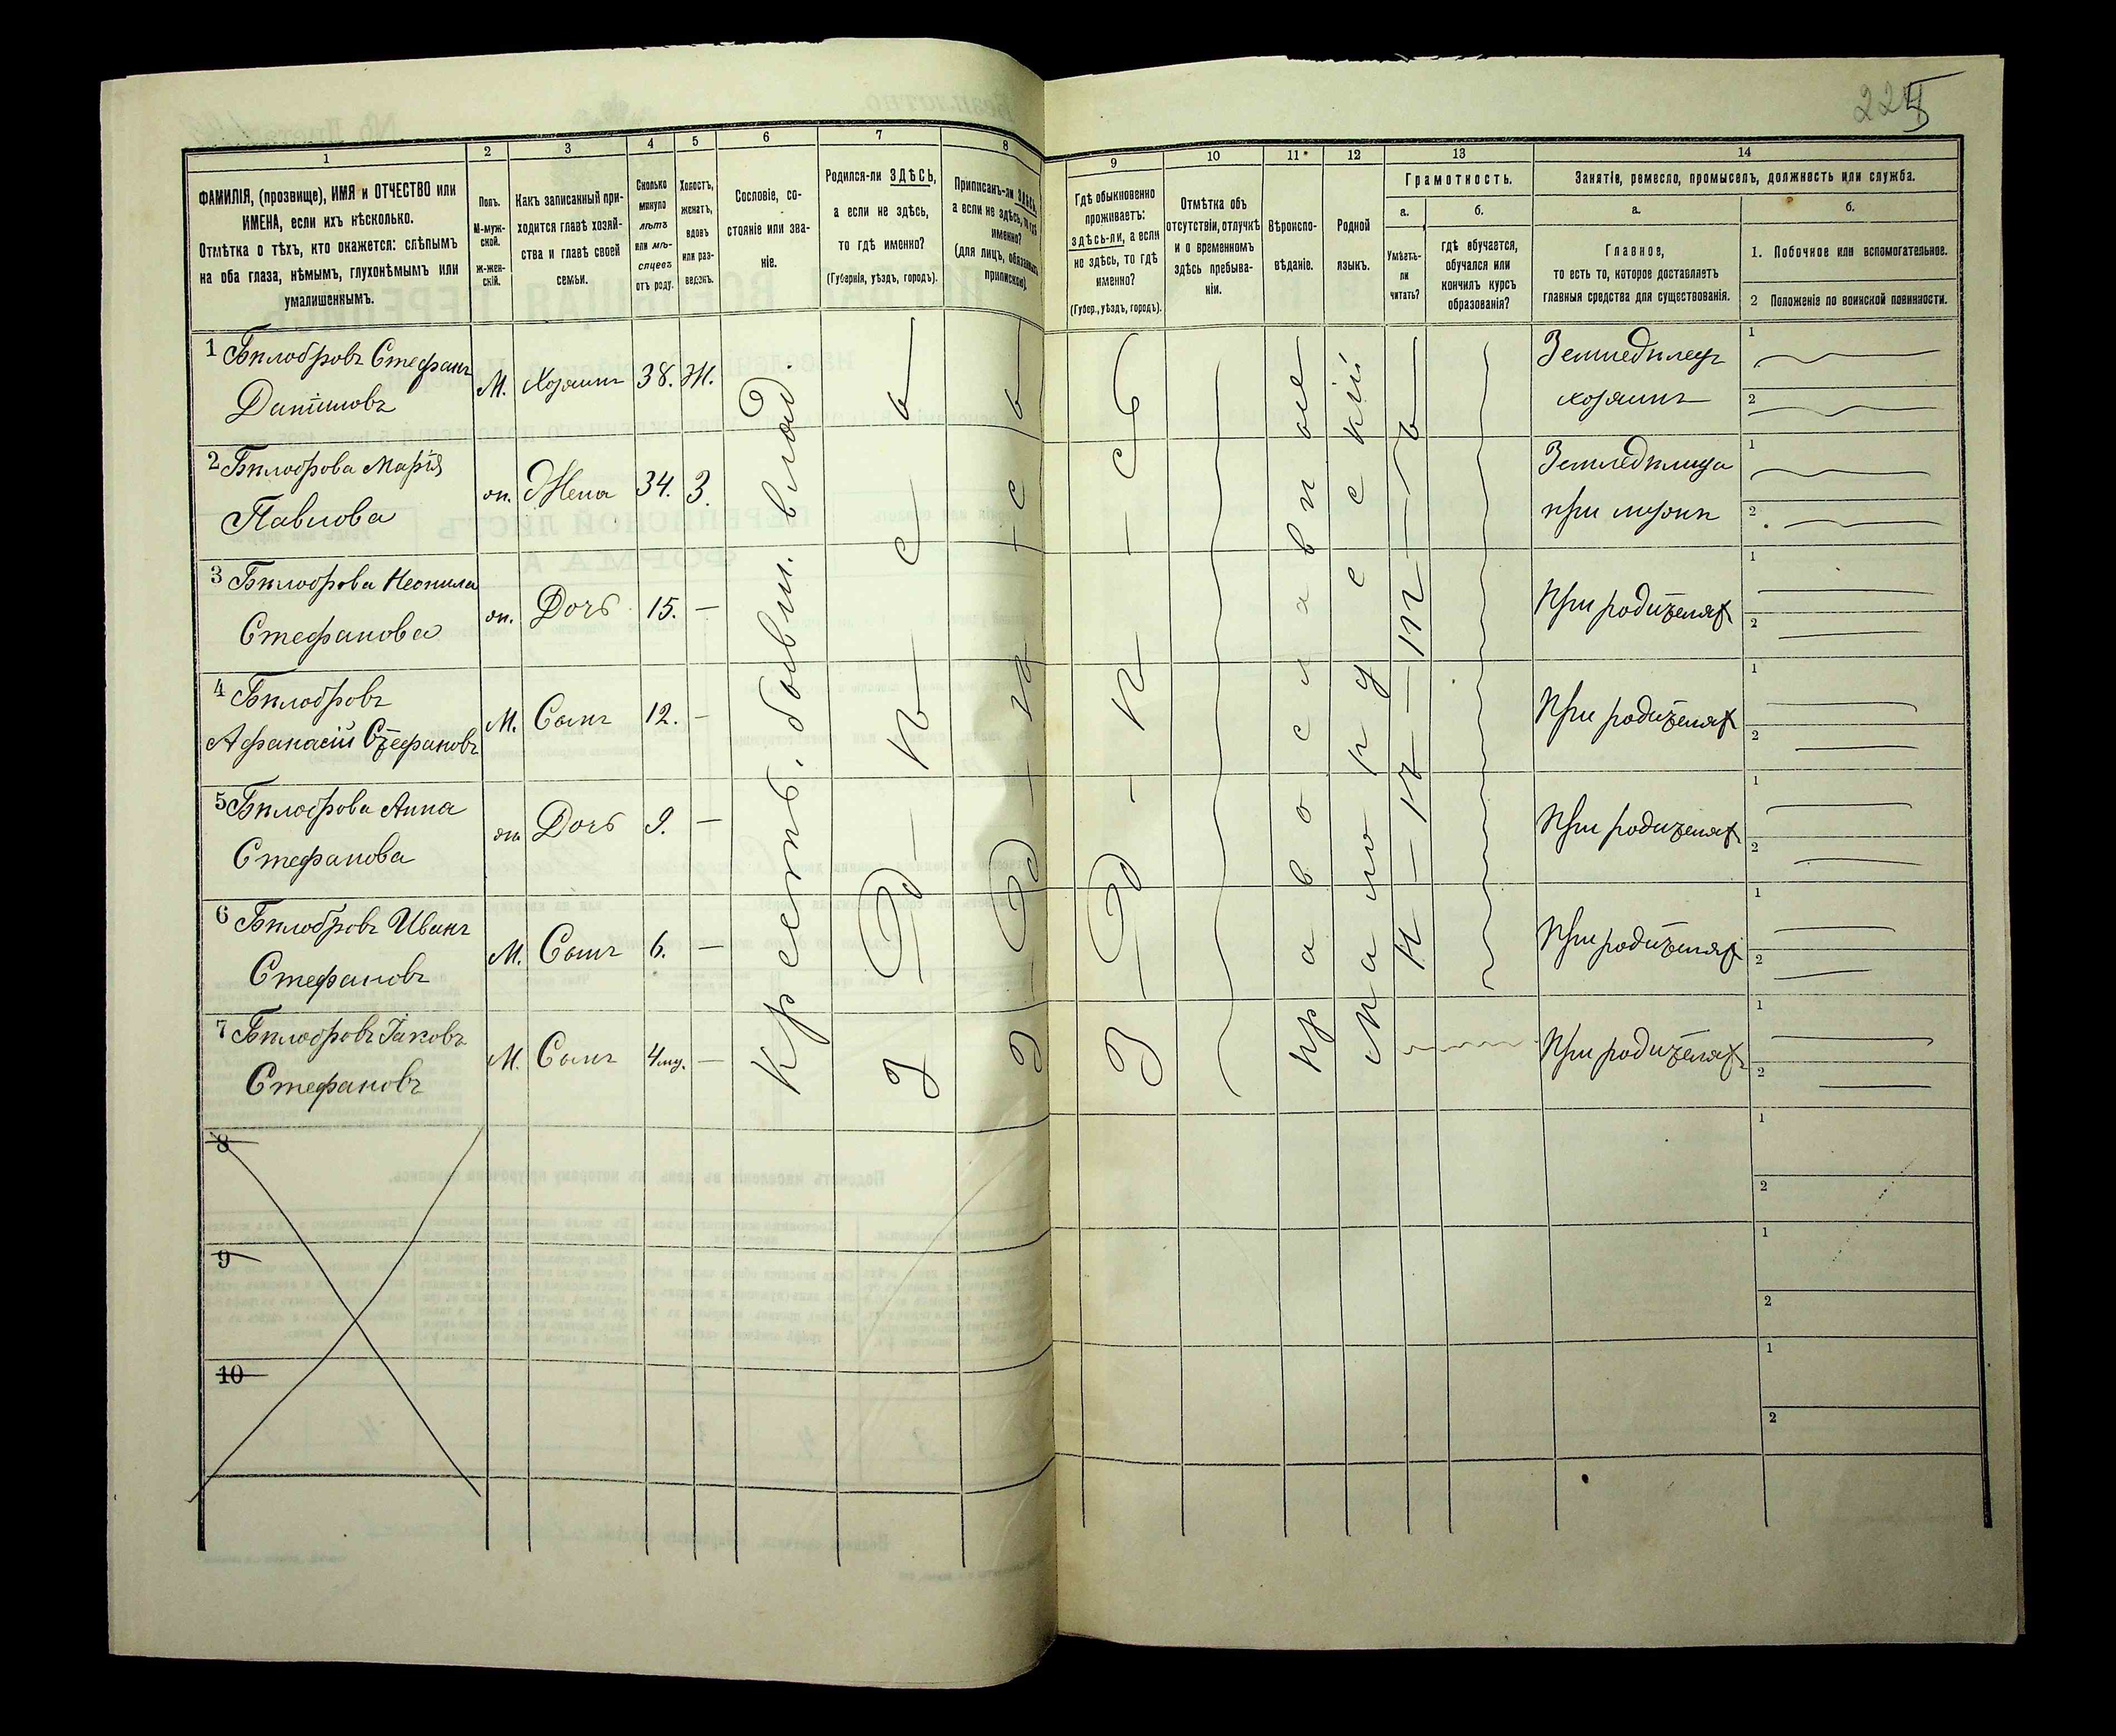 225
1
2
3
4
5
6
7
8
9
10
11
12
13
14
ФАМИЛІЯ, (прозвище), ИМЯ и ОТЧЕСТВО или
ИМЕНА, если ихъ нѣсколько.
Отмѣтка о тѣхъ, кто окажется: слѣпымъ
на оба глаза, нѣмымъ, глухонѣмымъ или
умалишеннымъ.
Полъ.
М-муж-
ской.
ж-жен-
скій.
Какъ записанный при-
ходится главѣ хозяй-
ства и главѣ своей
семьи.
Сколько
минуло
лѣтъ
или мѣ-
сяцевъ
отъ роду.
Холостъ,
женатъ,
вдовъ
или раз-
веденъ.
Сословіе, со-
стояніе или зва-
ніе.
Родился-ли ЗДѢСЬ,
а если не здѣсь,
то гдѣ именно?
(Губернія, уѣздъ, городъ).
Приписанъ-ли ЗДѢСЬ,
а если не здѣсь, то гдѣ
именно?
(для лицъ, обязанныхъ
припискою).
Гдѣ обыкновенно
проживаетъ:
здѣсь-ли, а если
не здѣсь, то гдѣ
именно?
(Губер., уѣздъ, городъ).
Отмѣтка объ
отсутствіи, отлучкѣ
и о временномъ
здѣсь пребыва-
ніи.
Вѣроиспо-
вѣданіе.
Родной
языкъ.
Грамотность.
а.
Умѣетъ-
ли
читать?
б.
гдѣ обучается,
обучался или
кончилъ курсъ
образованія?
Занятіе, ремесло, промыселъ, должность или служба.
а.
Главное,
то есть то, которое доставляетъ
главныя средства для существованія.
б.
1. Побочное или вспомогательное.
2 Положеніе по воинской повинности.
1 Бѣлобровъ Стефанъ
Даніиловъ
М. Хозяинъ 38. Ж.
Земледѣлецъ
хозяинъ
1
2
2 Бѣлоброва Марія
Павлова
ж. Жена 34. З.
Земледѣлица
при мужѣ
1
2
3 Бѣлоброва Неонила
Стефанова
ж. Дочь 15. —
При родителяхъ
1
2
4 Бѣлобровъ
Афанасій Стефановъ
М. Сынъ 12. —
При родителяхъ
1
2
5 Бѣлоброва Анна
Стефанова
ж. Дочь 9. —
При родителяхъ
1
2
6 Бѣлобровъ Иванъ
Стефановъ
М. Сынъ 6. —
При родителяхъ
1
2
7 Бѣлобровъ Іаковъ
Стефановъ
М. Сынъ —
При родителяхъ
1
2
Крестъ. бывш. влад.
З—д—ѣ—с—ь
З—д—ѣ—с—ь
З—д—ѣ—сь
Православное
Малорусскій
Н—ѣ—тъ
8
1
2
9
1
2
10
1
2